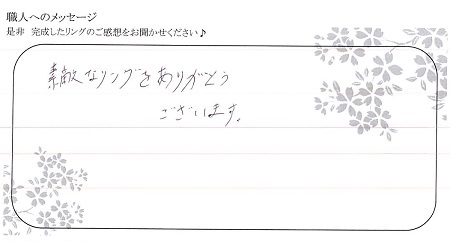 職人へのメッセージ
是非 完成したリングのご感想をお聞かせください♪
素敵なリングをありがとう
ございます。